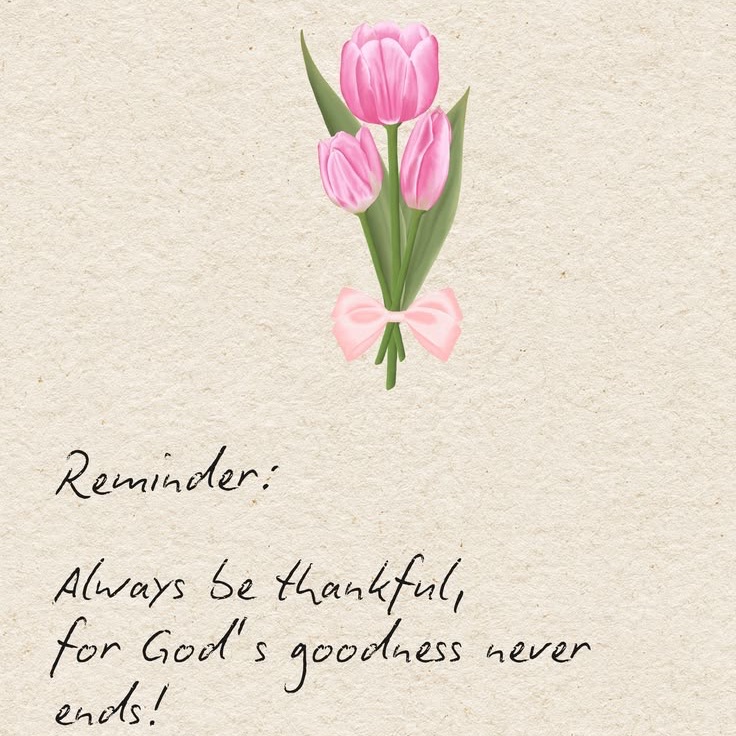 Reminder:
Always be thankful,
for God's goodness never
ends!